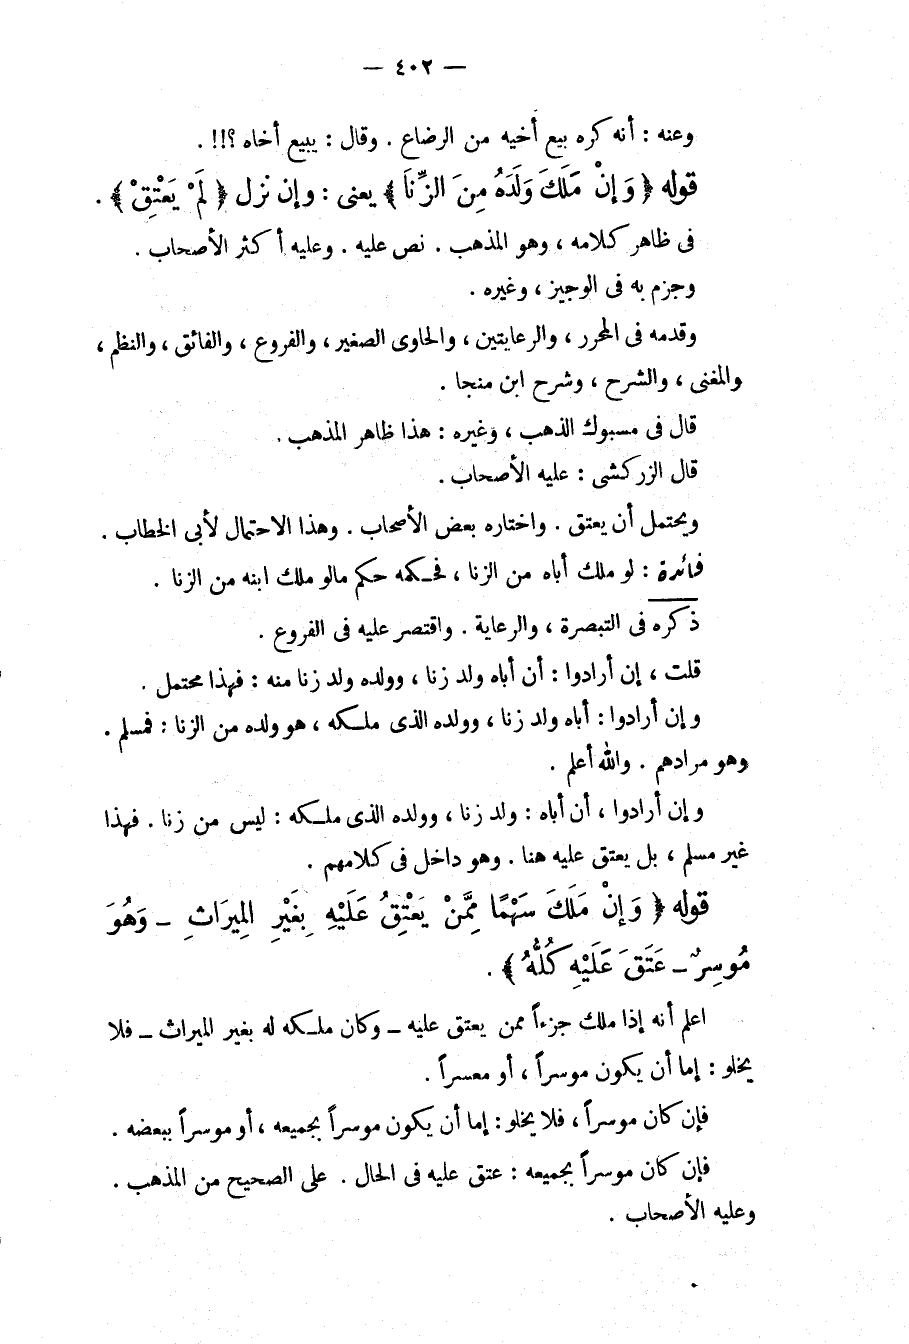 — ٤٠٢ —
وعنه : أنه كره بيع أخيه من الرضاع . وقال : يبيع أخاه ؟!!! .
قوله ﴿ وَإِنْ مَلَكَ وَلَدَهُ مِنَ الزِّنَا ﴾ يعنى : وإن نزل ﴿ لَمْ يَعْتِقْ ﴾ .
فى ظاهر كلامه ، وهو المذهب . نص عليه . وعليه أكثر الأصحاب .
وجزم به فى الوجيز ، وغيره .
وقدمه فى المحرر ، والرعايتين ، والحاوى الصغير ، والفروع ، والفائق ، والنظم ،
والمغنى ، والشرح ، وشرح ابن منجا .
قال فى مسبوك الذهب ، وغيره : هذا ظاهر المذهب .
قال الزركشى : عليه الأصحاب .
ويحتمل أن يعتق . واختاره بعض الأصحاب . وهذا الاحتمال لأبى الخطاب .
فائدة : لو ملك أباه من الزنا ، فحكمه حكم مالو ملك ابنه من الزنا .
ذكره فى التبصرة ، والرعاية . واقتصر عليه فى الفروع .
قلت ، إن أرادوا : أن أباه ولد زنا ، وولده ولد زنا منه : فهذا محتمل .
وإن أرادوا : أباه ولد زنا ، وولده الذى ملكه ، هو ولده من الزنا : فمسلم .
وهو مرادهم . والله أعلم .
وإن أرادوا ، أن أباه : ولد زنا ، وولده الذى ملكه : ليس من زنا . فهذا
غير مسلم ، بل يعتق عليه هنا . وهو داخل فى كلامهم .
قوله ﴿ وَإِنْ مَلَكَ سَهْمًا مِمَّنْ يَعْتِقُ عَلَيْهِ بِغَيْرِ المِيرَاثِ ــ وَهُوَ
مُوسِرٌ ــ عَتَقَ عَلَيْهِ كُلُّهُ ﴾ .
اعلم أنه إذا ملك جزءاً ممن يعتق عليه ــ وكان ملكه له بغير الميراث ــ فلا
يخلو : إما أن يكون موسراً ، أو معسراً .
فإن كان موسراً ، فلا يخلو : إما أن يكون موسراً بجميعه ، أو موسراً ببعضه .
فإن كان موسراً بجميعه : عتق عليه فى الحال . على الصحيح من المذهب .
وعليه الأصحاب .